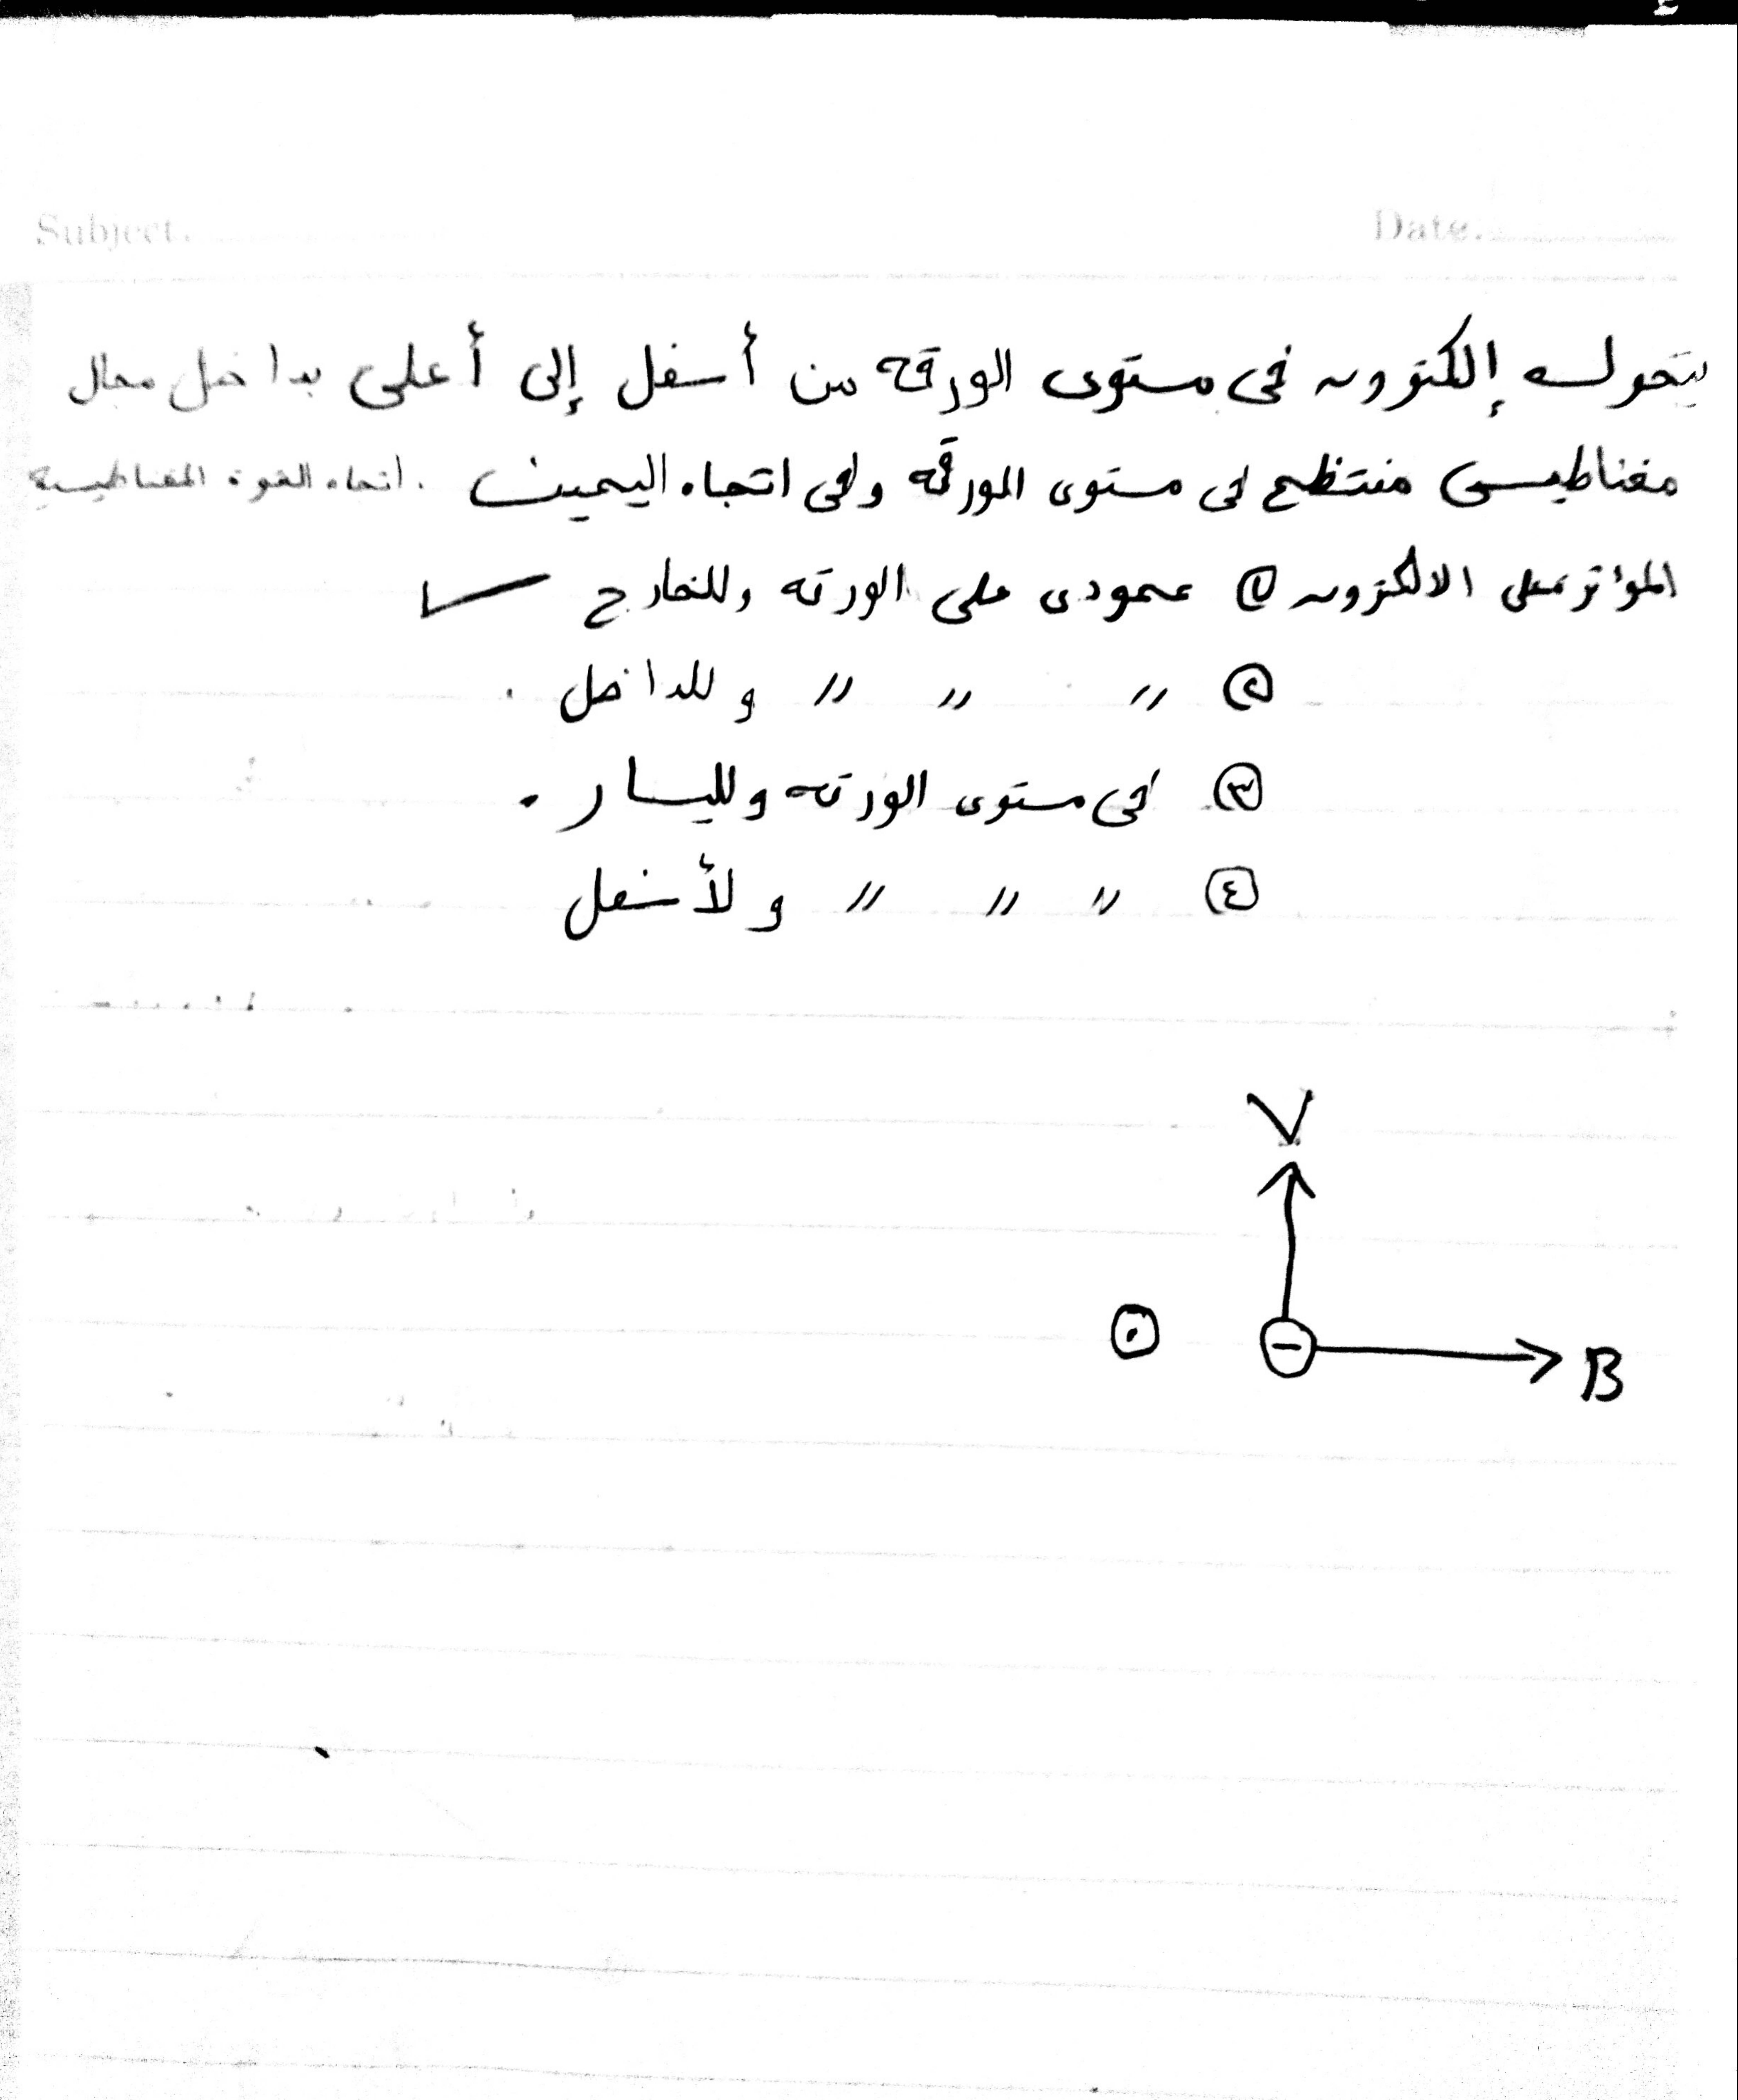 Subject. Date.
يتحرك إلكترون فى مستوى الورقه من أسفل إلى أعلى بداخل مجال
مغناطيسى منتظم فى مستوى الورقه وفى اتجاه اليمين . اتجاه القوة المغناطيسية
المؤثر على الالكترون ① عمودى على الورقه وللخارج ✓
② 〃 〃 〃 وللداخل .
③ فى مستوى الورقه ولليسار .
④ 〃 〃 〃 ولأسفل
V
⊙ ⊖ B